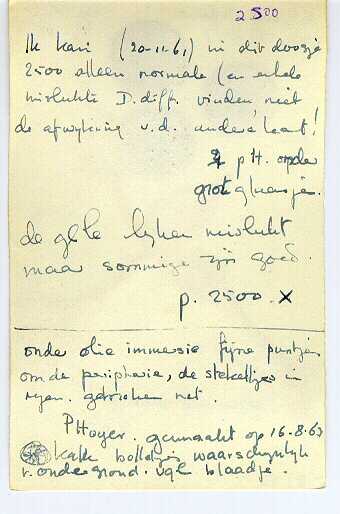 2500
Ik kan (20-11-61) in dit doosje
2500 alleen normale (en enkele
mislukte D. diff. vinden niet
de afwijking v.d. andere kant!
pH. onder
grote glaasjes.
de gele lijken mislukt
maar sommige zijn goed.
p. 2500. X
onder olie immersie fijne puntjes
om de peripherie, de stekeltjes in
rijen. gebroken net.
PHoyer. gemaakt op 16-8-63
kalk bolletjes waarschijnlijk
v. ondergrond. vgl blaadje.